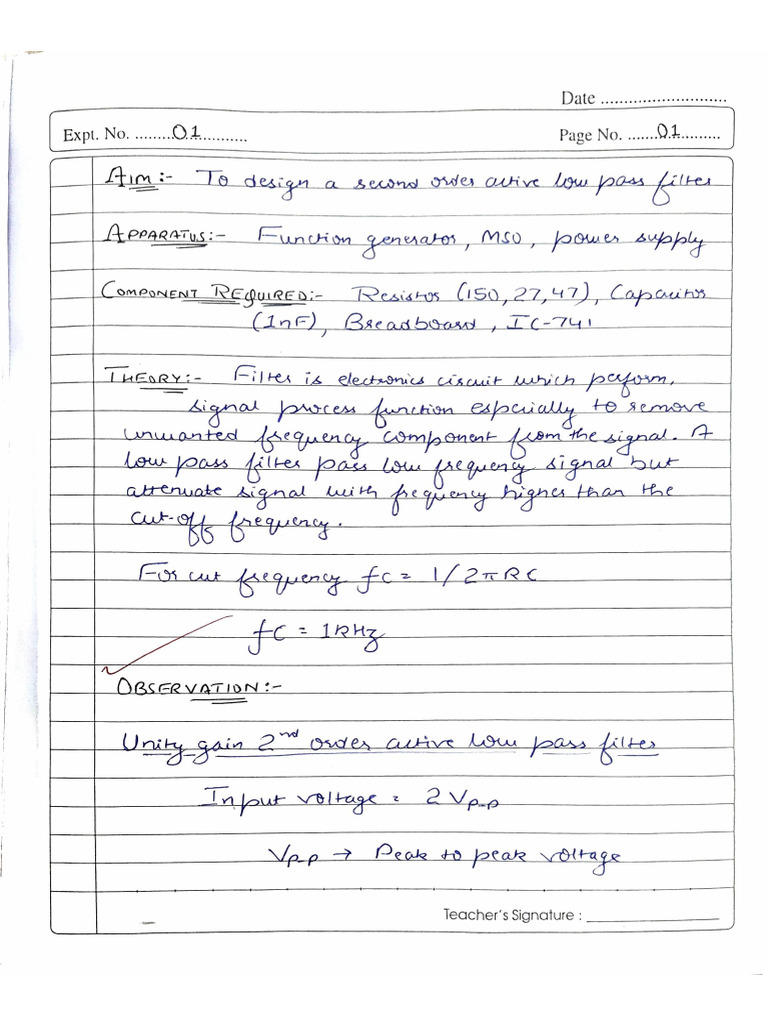 Date ...........................
Expt. No. ........01.......... Page No. ......01.........
AIM:- To design a second order active low pass filter
APPARATUS:- Function generator, MSO, power supply
COMPONENT REQUIRED:- Resistor (150, 27, 47), Capacitor
(1nF), Breadboard, IC-741
THEORY:- Filter is electronics circuit which perform,
signal process function especially to remove
unwanted frequency component from the signal. A
low pass filter pass low frequency signal but
attenuate signal with frequency higher than the
cut-off frequency.
For cut frequency fC = 1/2πRC
fC = 1KHz
OBSERVATION:-
Unity gain 2nd order active low pass filter
Input voltage = 2 Vp-p
Vp-p → Peak to peak voltage
Teacher's Signature : ____________________